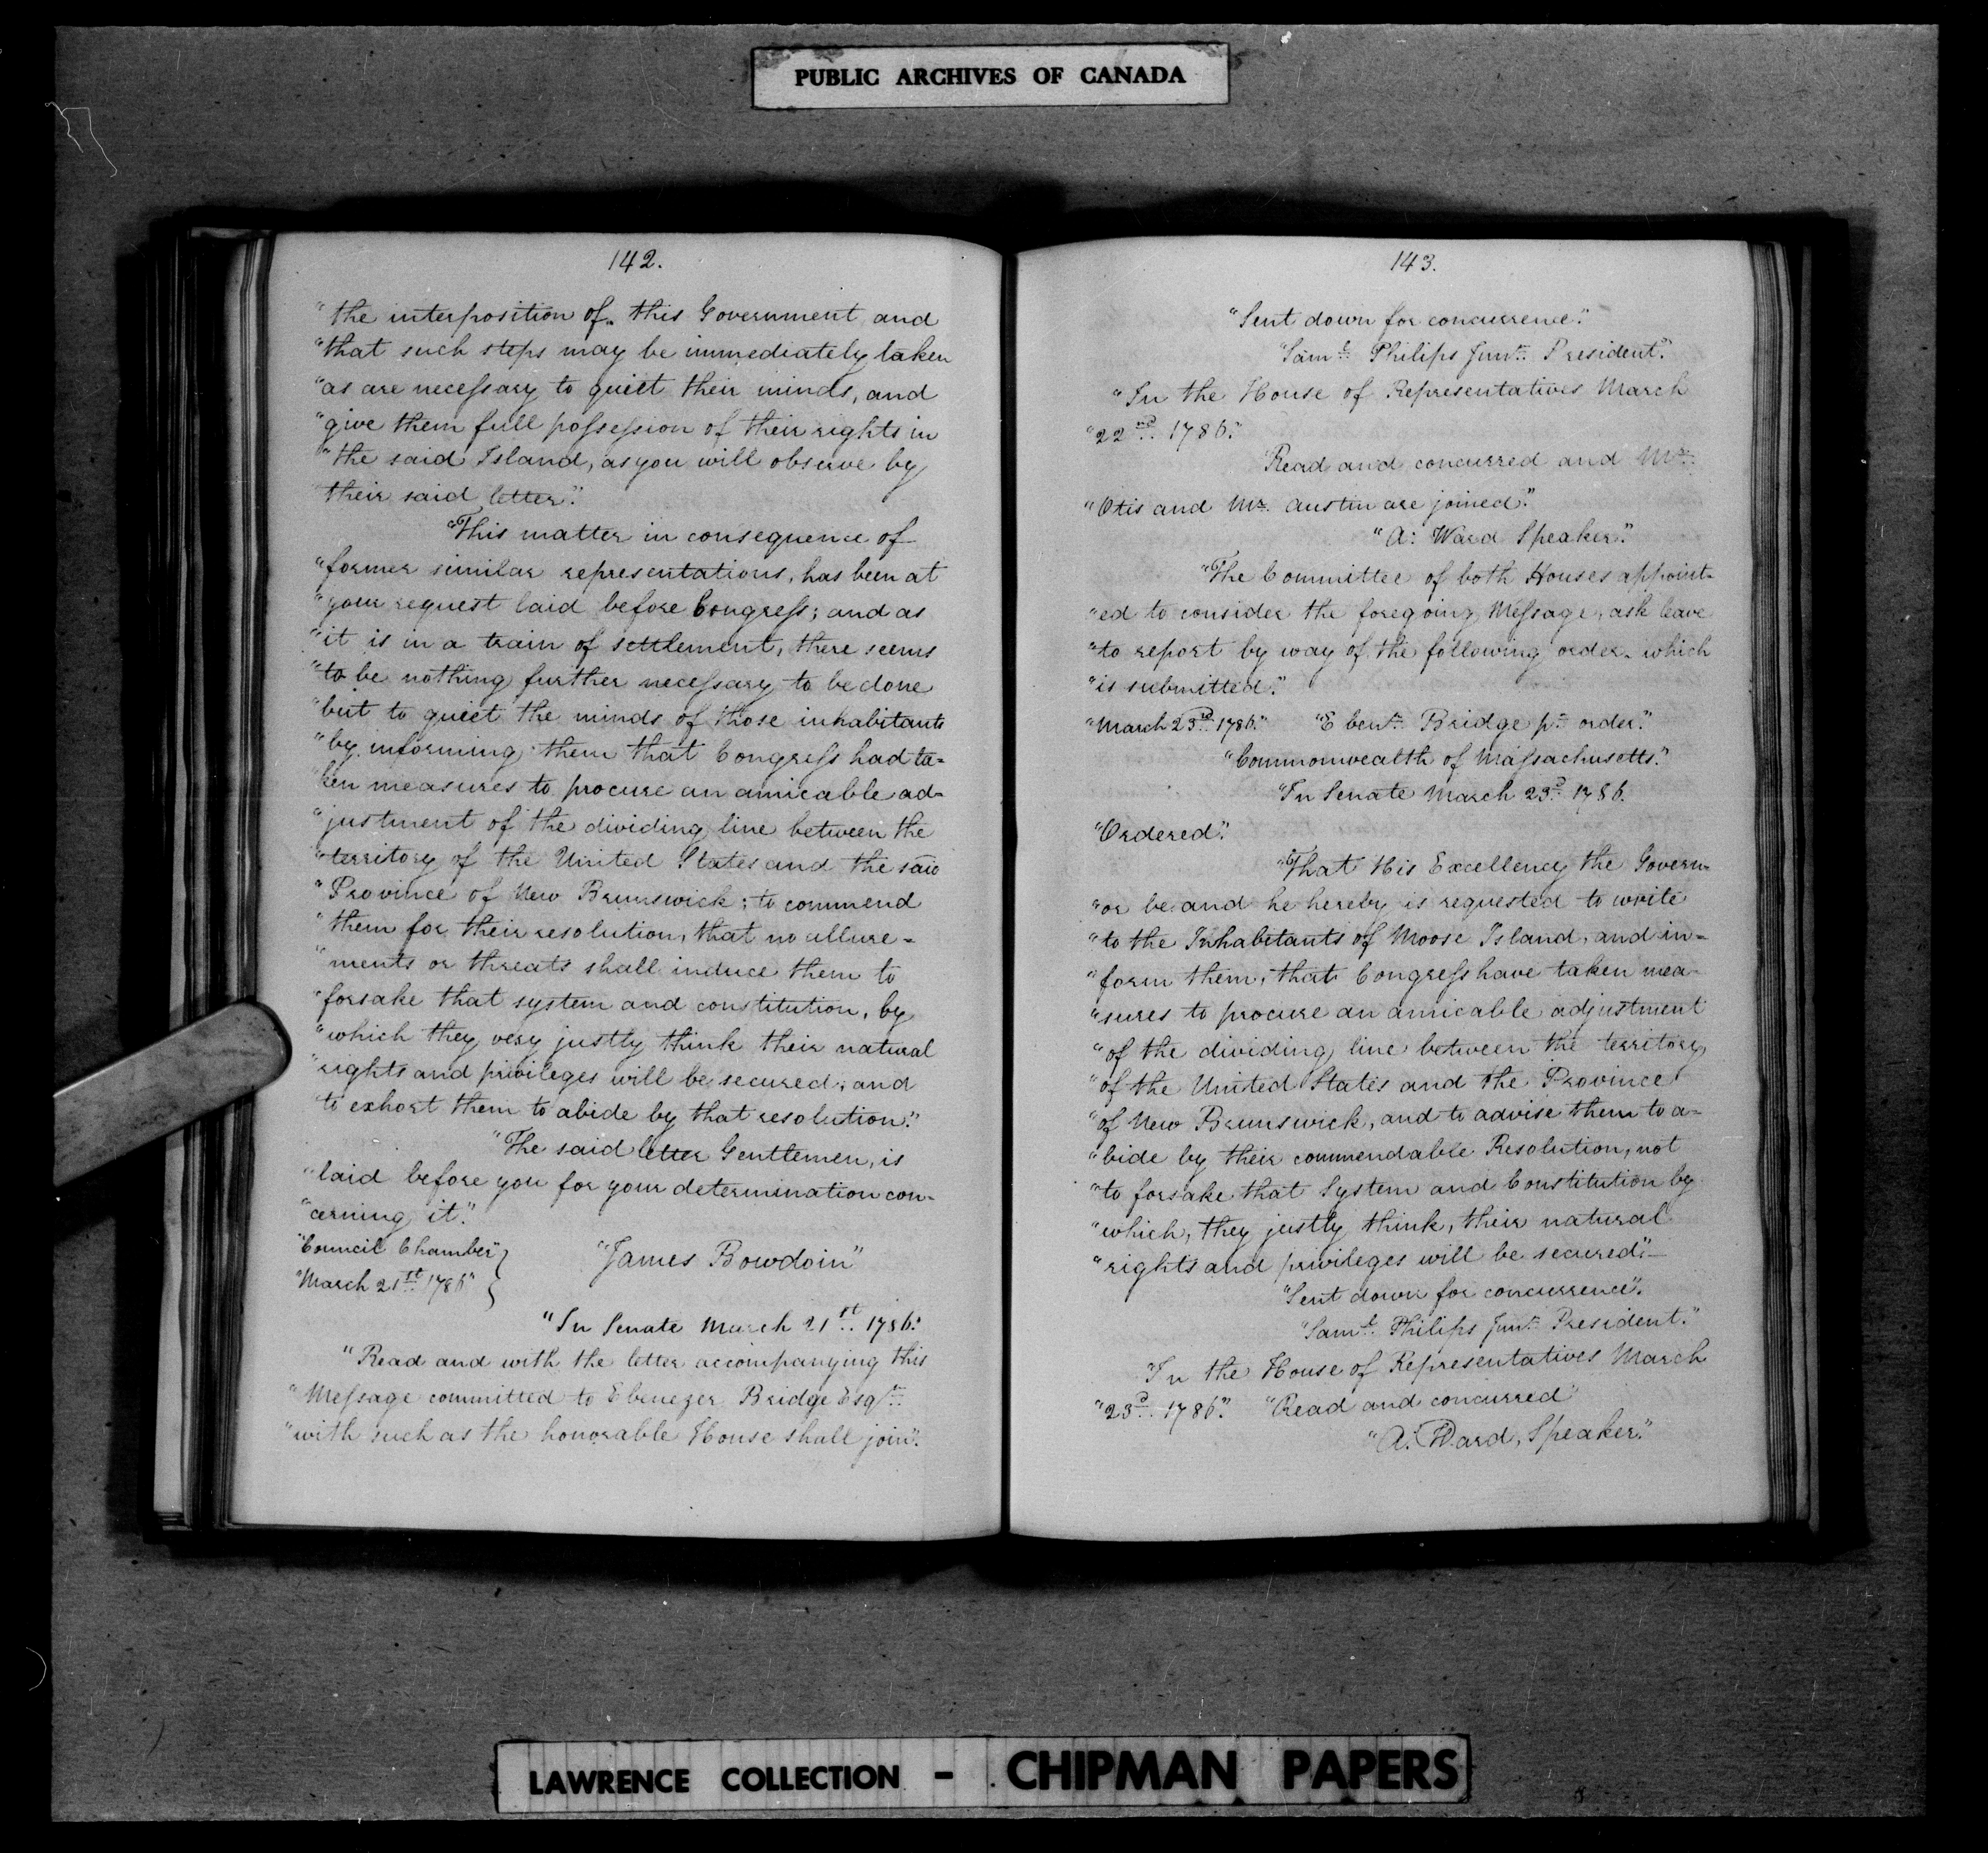 PUBLIC ARCHIVES OF CANADA
142.
"the interposition of this Government and
"that such steps may be immediately taken
"as are necessary to quiet their minds, and
"give them full possession of their rights in
"the said Island, as you will observe by
their said letter."
"This matter in consequence of
"former similar representations, has been at
"your request laid before Congress; and as
"it is in a train of settlement, there seems
"to be nothing further necessary to be done
"but to quiet the minds of those inhabitants
"by informing them that Congress had ta-
"ken measures to procure an amicable ad-
"justment of the dividing line between the
"territory of the United States and the said
"Province of New Brunswick; to commend
"them for their resolution, that no allure-
"ments or threats shall induce them to
"forsake that system and constitution, by
"which they very justly think their natural
"rights and privileges will be secured; and
"to exhort them to abide by that resolution."
"The said letter Gentlemen, is
"laid before you for your determination con-
"cerning it."
"Council Chamber"
"March 21st 1786"
"James Bowdoin"
"In Senate March 21st. 1786."
"Read and with the letter accompanying this
"Message committed to Ebenezer Bridge Esqr.
"with such as the honorable House shall join".
143.
"Sent down for concurrence."
"Saml. Philips Junr. President."
"In the House of Representatives March
"22nd. 1786."
Read and concurred and Mr.
"Otis and Mr. Austin are joined."
"A: Ward Speaker."
"The Committee of both Houses appoint-
"ed to consider the foregoing Message, ask leave
"to report by way of the following order. which
"is submitted."
"March 23rd. 1786." "Ebenr. Bridge pr. order."
"Commonwealth of Massachusetts."
"In Senate March 23d. 1786.
"Ordered".
"That His Excellency the Govern-
"or be and he hereby is requested to write
"to the Inhabitants of Moose Island, and in-
"form them, that Congress have taken mea-
"sures to procure an amicable adjustment
"of the dividing line between the territory
"of the United States and the Province
"of New Brunswick, and to advise them to a-
"bide by their commendable Resolution, not
"to forsake that System and Constitution by
"which, they justly think, their natural
"rights and privileges will be secured."—
"Sent down for concurrence".
"Saml. Philips Junr. President."
"In the House of Representatives March
"23d. 1786." "Read and concurred"
"A: Ward, Speaker."
LAWRENCE COLLECTION - CHIPMAN PAPERS